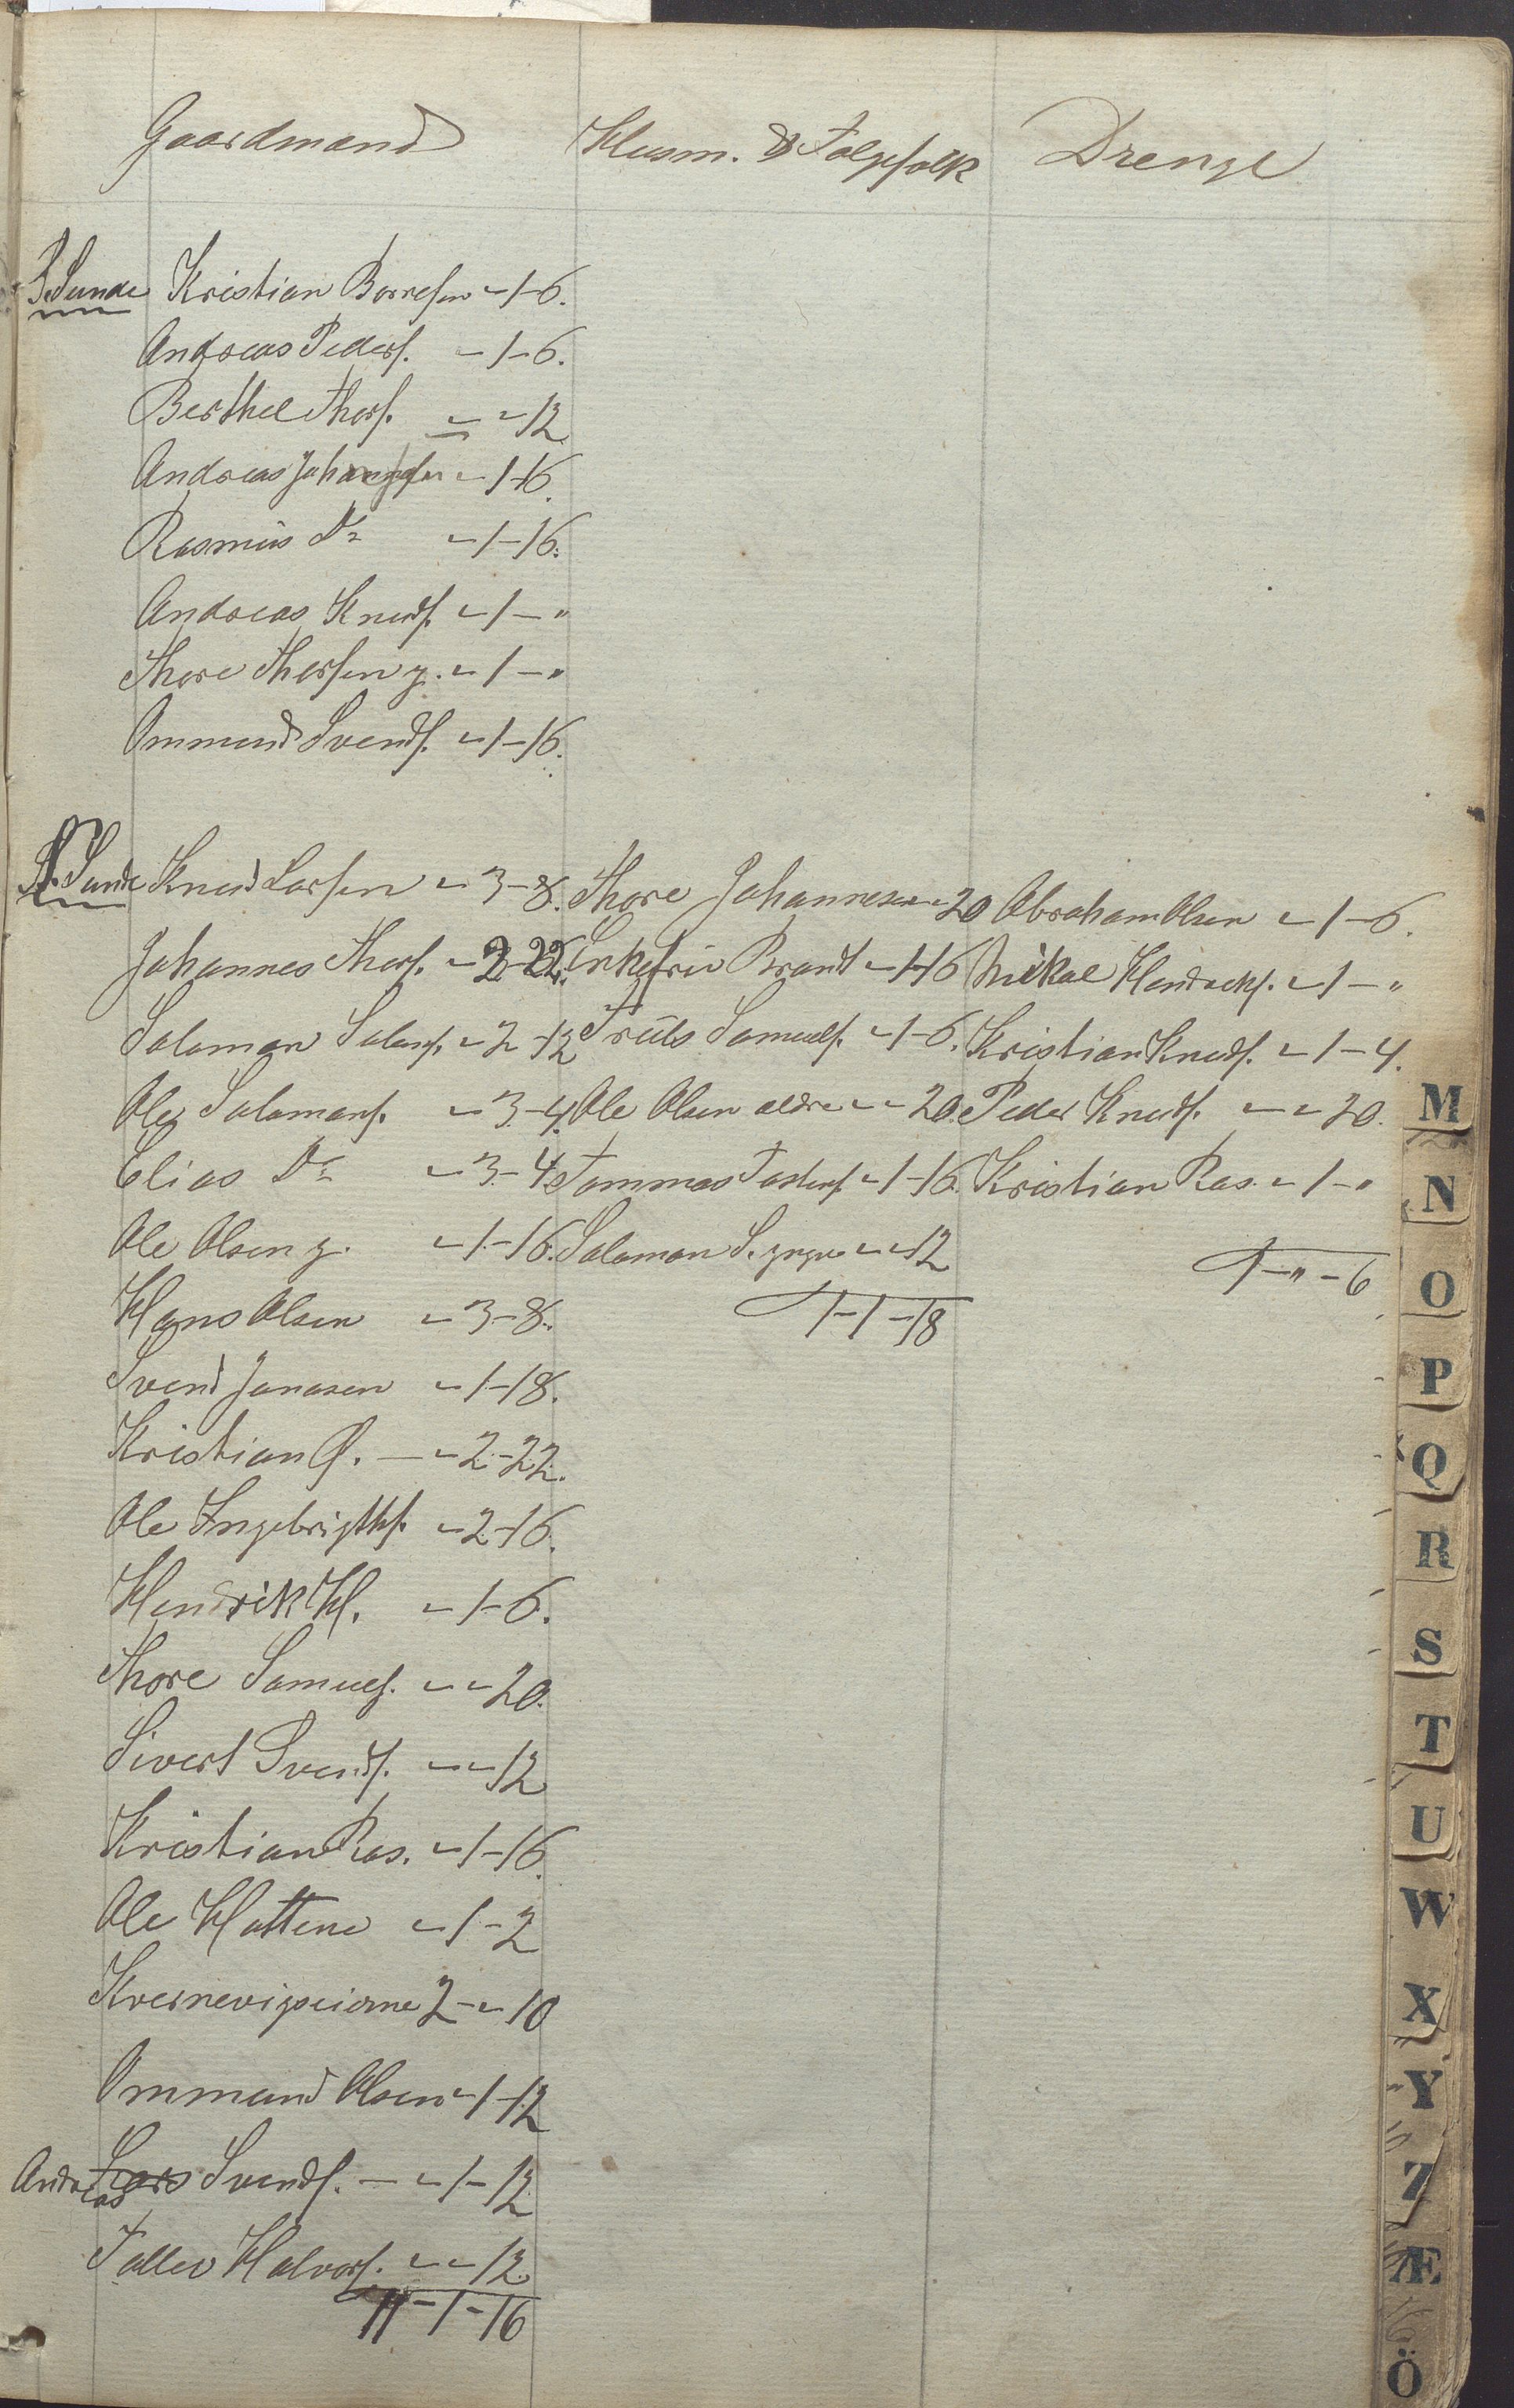 Gaardmænd Husm. & Følgefolk Drenge
S. Sunde Kristian Borresen " 1 - 6.
Andreas Peders. " 1 - 6.
Berthel Thors. " " 12
Andreas Johannesen " 1 - 16.
Rasmus Do " 1 - 16.
Andreas Knuds. " 1 - "
Thore Thorsen y. " 1 - "
Ommund Svends. " 1 - 16.
N. Sunde Knud Larsen " 3 - 8. Thore Johannes " " 20 Abraham Olsen " 1 - 6.
Johannes Thors. " 2 - 22. Enkefru Brandt " 1 - 16 Mikal Hendrcks. " 1 - "
Salamon Salams. " 2 - 12 Truls Samuels. " 1 - 6. Kristian Knuds. " 1 - 4.
Ole Salamons. " 3 - 4. Ole Olsen ældre " " 20. Peder Knuds. " " 20.
Elias Do " 3 - 4. Tommas Tosters. " 1 - 16. Kristian Ras. " 1 - "
Ole Olsen y. " 1 - 16. Salamon S. yngre " " 12
1 - " - 6
Hans Olsen " 3 - 8.
1 - 1 - 18
Svend Janasen " 1 - 18.
Kristian Q. — " 2 - 22.
Ole Ingebrigths. " 2 - 16.
Hendrik H. " 1 - 6.
Thore Samuels. " " 20.
Sivert Svends. " " 12
Kristian Ras. " 1 - 16.
Ole Hattene " 1 - 2
2 - " 10
Ommund Olsen " 1 - 12
Andreas Lars Svends. — " 1 - 12
Tallev Halvors. " " 12.
11 - 1 - 16
M
N
O
P
Q
R
S
T
U
W
X
Y
Z
Æ
Ö